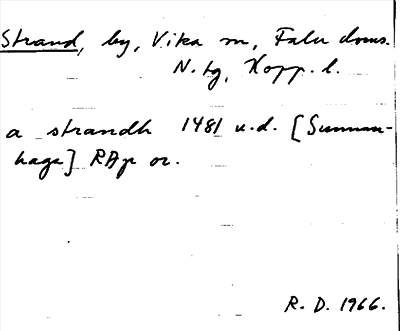 Strand, by, Vika sn, Falu doms.
N. tg, Kopp. l.
a strandh 1481 u.d. [Sunnan-
haga] RAp or.
R. D. 1966.